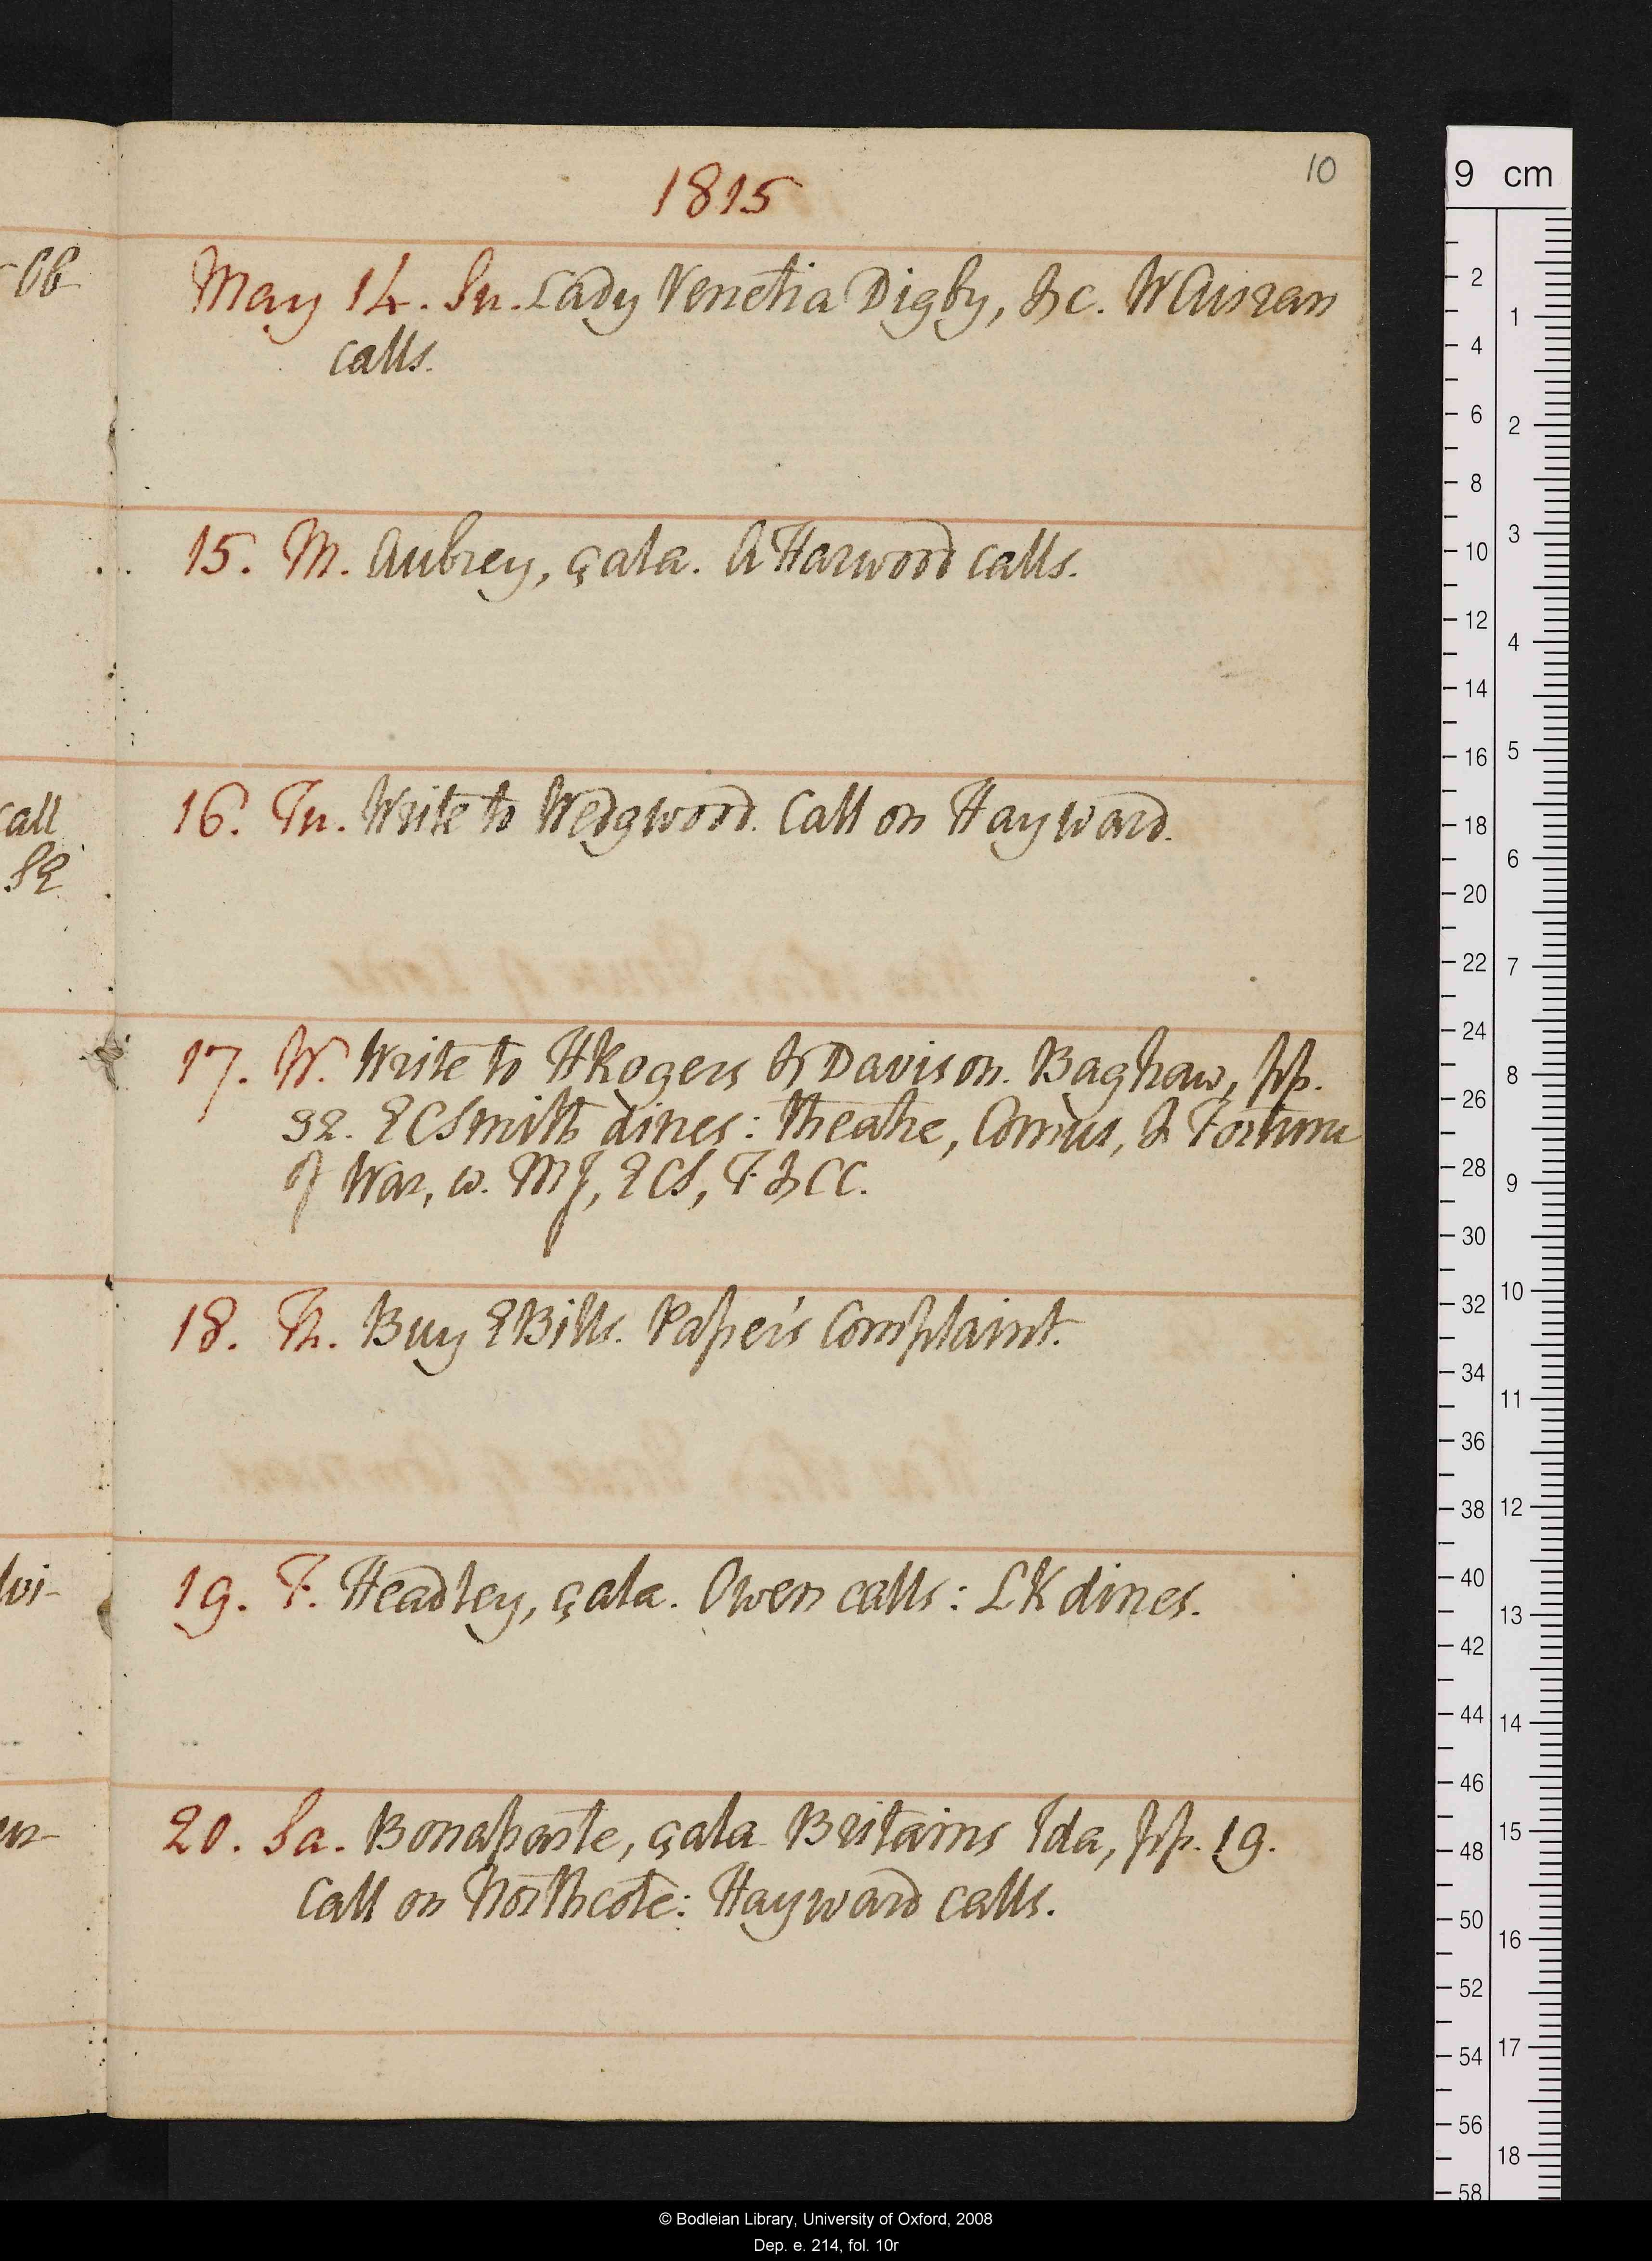 1815
10
May 14. Su. Lady Venetia Digby, & c. W Curran
calls.
15. M. Aubrey, çala. A Harwood calls.
16. Tu. Write to Wedgwood. Call on Hayward.
17. W. Write to H Rogers & Davison. Bagshaw, pp.
32. E C Smith dines: theatre, Comus, & Fortune
of War, w. MJ, ECS, F. & CC.
18. Th. Buy E Bills. Paper's Complaint.
19. F. Headley, çala. Owen calls: LK dines.
20. Sa. Bonaparte, çala. Britains Ida, pp. 19.
Call on Northcote: Hayward calls.
call
9 cm
2
4
6
8
10
12
14
16
18
20
22
24
26
28
30
32
34
36
38
40
42
44
46
48
50
52
54
56
58
1
2
3
4
5
6
7
8
9
10
11
12
13
14
15
16
17
18
© Bodleian Library, University of Oxford, 2008
Dep. e. 214, fol. 10r